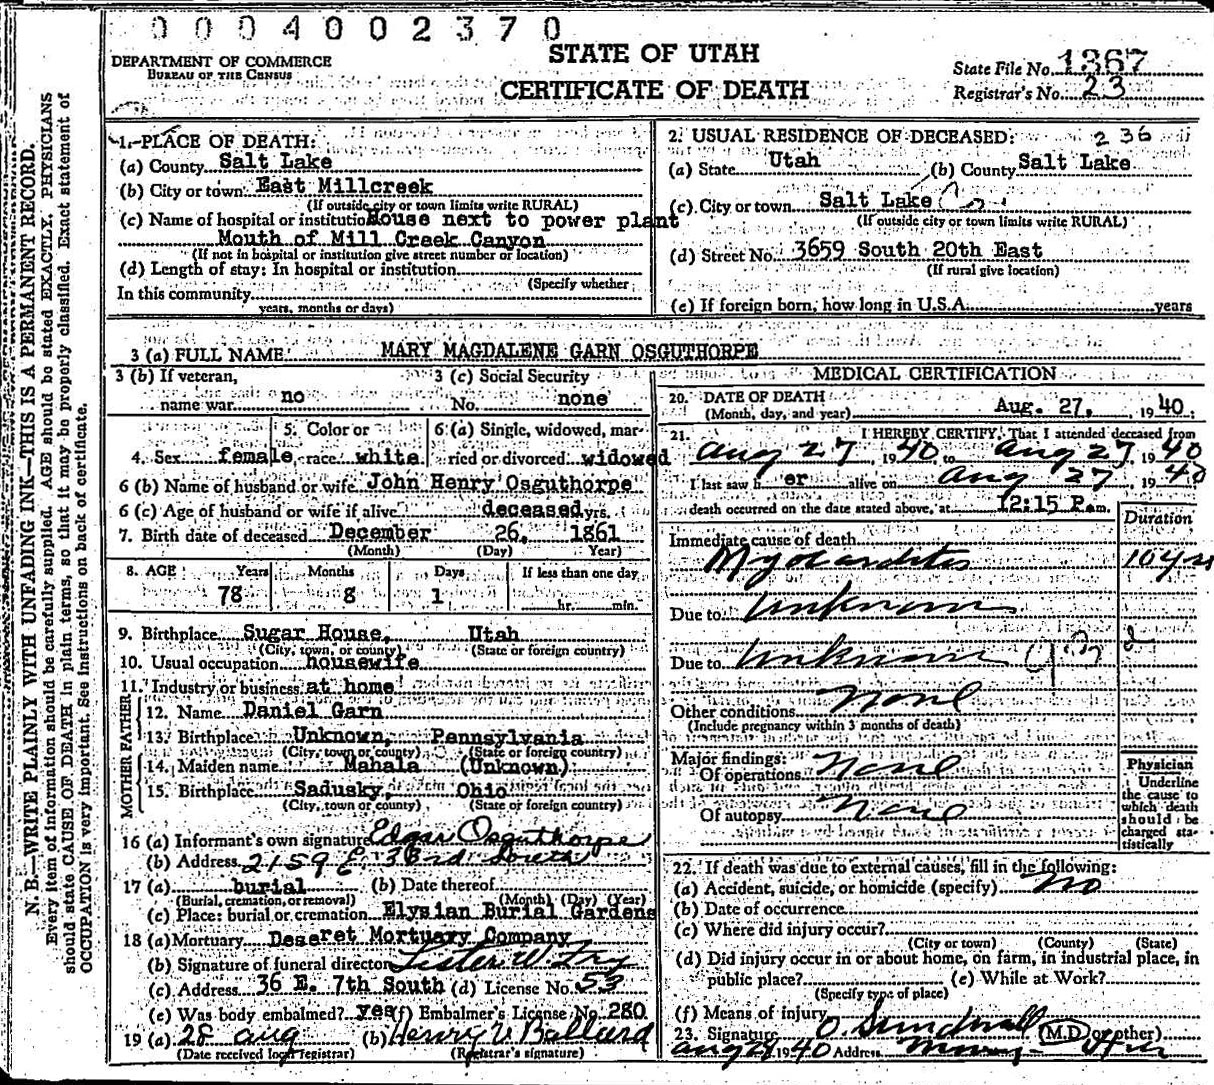 0004002370
STATE OF UTAH
CERTIFICATE OF DEATH
DEPARTMENT OF COMMERCE
BUREAU OF THE CENSUS
State File No. 1367
Registrar's No. 23
N. B.—WRITE PLAINLY WITH UNFADING INK—THIS IS A PERMANENT RECORD.
Every item of information should be carefully supplied. AGE should be stated EXACTLY. PHYSICIANS
should state CAUSE OF DEATH in plain terms, so that it may be properly classified. Exact statement of
OCCUPATION is very important. See instructions on back of certificate.
1. PLACE OF DEATH:
(a) County Salt Lake
(b) City or town East Millcreek
(If outside city or town limits write RURAL)
(c) Name of hospital or institution House next to power plant
Mouth of Mill Creek Canyon
(If not in hospital or institution give street number or location)
(d) Length of stay: In hospital or institution
(Specify whether
In this community
years, months or days)
2. USUAL RESIDENCE OF DECEASED: 236
(a) State Utah (b) County Salt Lake
(c) City or town Salt Lake
(If outside city or town limits write RURAL)
(d) Street No. 3659 South 20th East
(If rural give location)
(e) If foreign born, how long in U.S.A. years
3 (a) FULL NAME MARY MAGDALENE GARN OSGUTHORPE
3 (b) If veteran, name war no
3 (c) Social Security No. none
4. Sex female
5. Color or race white
6 (a) Single, widowed, married or divorced widowed
6 (b) Name of husband or wife John Henry Osguthorpe
6 (c) Age of husband or wife if alive deceased yrs.
7. Birth date of deceased December 26, 1861
(Month) (Day) Year)
8. AGE Years Months Days If less than one day
78 8 1 hr. min.
9. Birthplace Sugar House, Utah
(City, town, or county) (State or foreign country)
10. Usual occupation housewife
11. Industry or business at home
FATHER
12. Name Daniel Garn
13. Birthplace Unknown, Pennsylvania
(City, town or county) (State or foreign country)
MOTHER
14. Maiden name Mahala (Unknown)
15. Birthplace Sadusky, Ohio
(City, town or county) (State or foreign country)
16 (a) Informant's own signature Edgar Osguthorpe
(b) Address 2159 E 33rd South
17 (a) burial (b) Date thereof
(Burial, cremation, or removal) (Month) (Day) (Year)
(c) Place: burial or cremation Elysian Burial Gardens
18 (a) Mortuary Deseret Mortuary Company
(b) Signature of funeral director Lester W. Fry
(c) Address 36 E. 7th South (d) License No. 53
(e) Was body embalmed? yes (f) Embalmer's License No. 280
19 (a) 28 aug (b) Henry V Ballard
(Date received local registrar) (Registrar's signature)
MEDICAL CERTIFICATION
20. DATE OF DEATH
(Month, day, and year) Aug. 27, 1940
21. I HEREBY CERTIFY, That I attended deceased from
Aug 27, 1940 to Aug 27, 1940
I last saw her alive on Aug 27 1940
death occurred on the date stated above, at 12:15 P.m.
Duration
Immediate cause of death
Myocarditis 10 yrs
Due to Unknown
Due to Unknown
Other conditions None
(Include pregnancy within 3 months of death)
Major findings:
Of operations None
Of autopsy None
Physician
Underline
the cause to
which death
should be
charged sta-
tistically
22. If death was due to external causes, fill in the following:
(a) Accident, suicide, or homicide (specify) No
(b) Date of occurrence
(c) Where did injury occur?
(City or town) (County) (State)
(d) Did injury occur in or about home, on farm, in industrial place, in
public place? (e) While at Work?
(Specify type of place)
(f) Means of injury
23. Signature O. Sundwall (M.D. or other)
Aug 28 1940 Address Murray